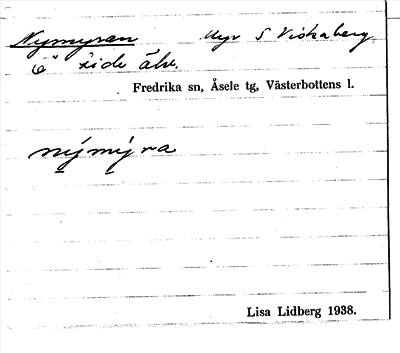 Nymyran Myr S Viskaberg
Ö sidu älv.
Fredrika sn, Åsele tg, Västerbottens l.
nýmýra
Lisa Lidberg 1938.